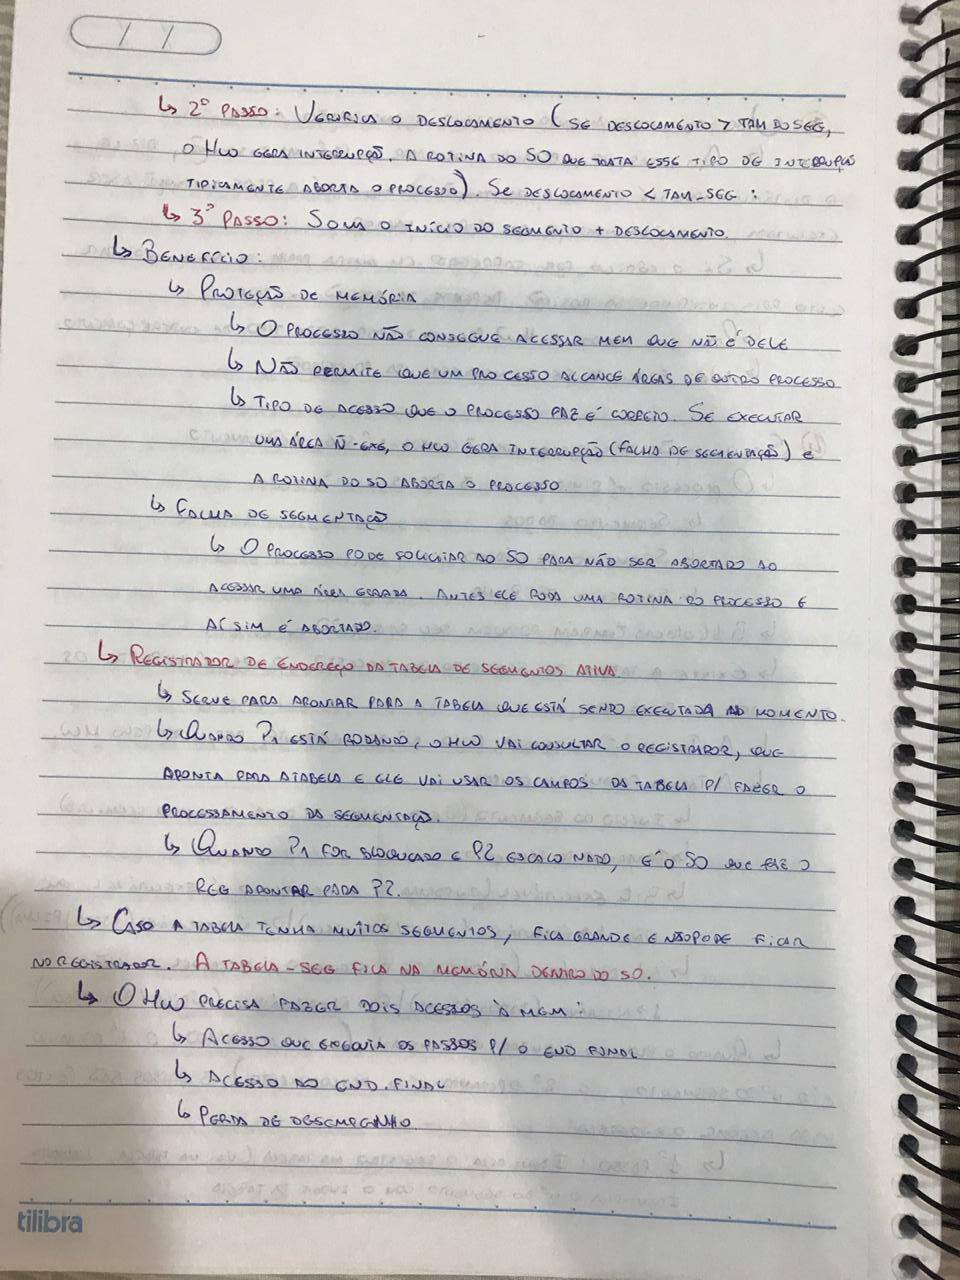 ↳ 2º PASSO: VERIFICA O DESLOCAMENTO (SE DESLOCAMENTO > TAM DO SEG,
O HW GERA INTERRUPÇÃO. A ROTINA DO SO QUE TRATA ESSE TIPO DE INTERRUPÇÃO
TIPICAMENTE ABORTA O PROCESSO). SE DESLOCAMENTO < TAM-SEG:
↳ 3º PASSO: SOMA O INÍCIO DO SEGMENTO + DESLOCAMENTO.
↳ BENEFÍCIO:
↳ PROTEÇÃO DE MEMÓRIA
↳ O PROCESSO NÃO CONSEGUE ACESSAR MEM QUE NÃO É DELE
↳ NÃO PERMITE QUE UM PROCESSO ALCANCE ÁREAS DE OUTRO PROCESSO
↳ TIPO DE ACESSO QUE O PROCESSO FAZ É CORRETO. SE EXECUTAR
UMA ÁREA Ñ-EXE, O HW GERA INTERRUPÇÃO (FALHA DE SEGMENTAÇÃO) E
A ROTINA DO SO ABORTA O PROCESSO.
↳ FALHA DE SEGMENTAÇÃO
↳ O PROCESSO PODE SOLICITAR AO SO PARA NÃO SER ABORTADO AO
ACESSAR UMA ÁREA ERRADA. ANTES ELE RODA UMA ROTINA DO PROCESSO E
ASSIM É ABORTADO.
↳ REGISTRADOR DE ENDEREÇO DA TABELA DE SEGMENTOS ATIVA
↳ SERVE PARA APONTAR PARA A TABELA QUE ESTÁ SENDO EXECUTADA NO MOMENTO.
↳ QUANDO P1 ESTÁ RODANDO, O HW VAI CONSULTAR O REGISTRADOR, QUE
APONTA PARA A TABELA E ELE VAI USAR OS CAMPOS DA TABELA P/ FAZER O
PROCESSAMENTO DA SEGMENTAÇÃO.
↳ QUANDO P1 FOR BLOQUEADO E P2 ESCALONADO, É O SO QUE FAZ O
REG APONTAR PARA P2.
↳ CASO A TABELA TENHA MUITOS SEGMENTOS, FICA GRANDE E NÃO PODE FICAR
NO REGISTRADOR. A TABELA-SEG FICA NA MEMÓRIA DENTRO DO SO.
↳ O HW PRECISA FAZER DOIS ACESSOS À MEM:
↳ ACESSO QUE EXECUTA OS PASSOS P/ O END FINAL
↳ ACESSO AO END. FINAL
↳ PERDA DE DESEMPENHO
tilibra